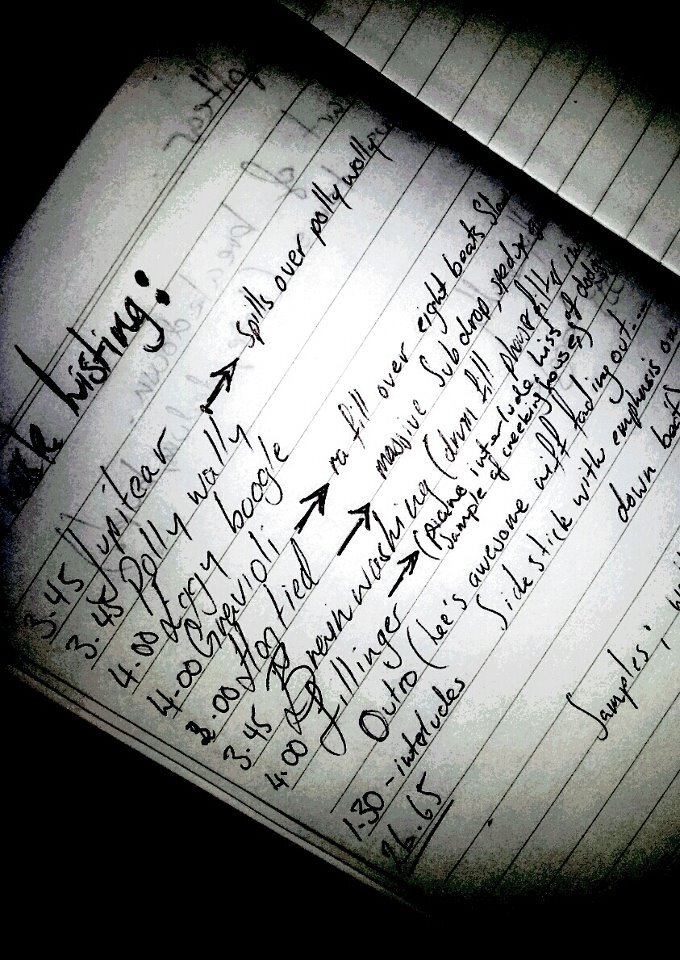 Listing:
3.45 Junitear → spills over polly wolly
3.45 Polly wally
4.00 Leggy boogle
4.00 Gravioli → ra fill over eight beats
3.00 Hog tied → massive Subdrop
3.45 Brainwashing (drum fill
4.00 Dillinger → (piano interlude, hiss of
Sample of creeking house)
Outro (Lee's awesome riff fading out...
Side stick with emphasis on
down beat)
1.30 - interludes
26.65
Samples;